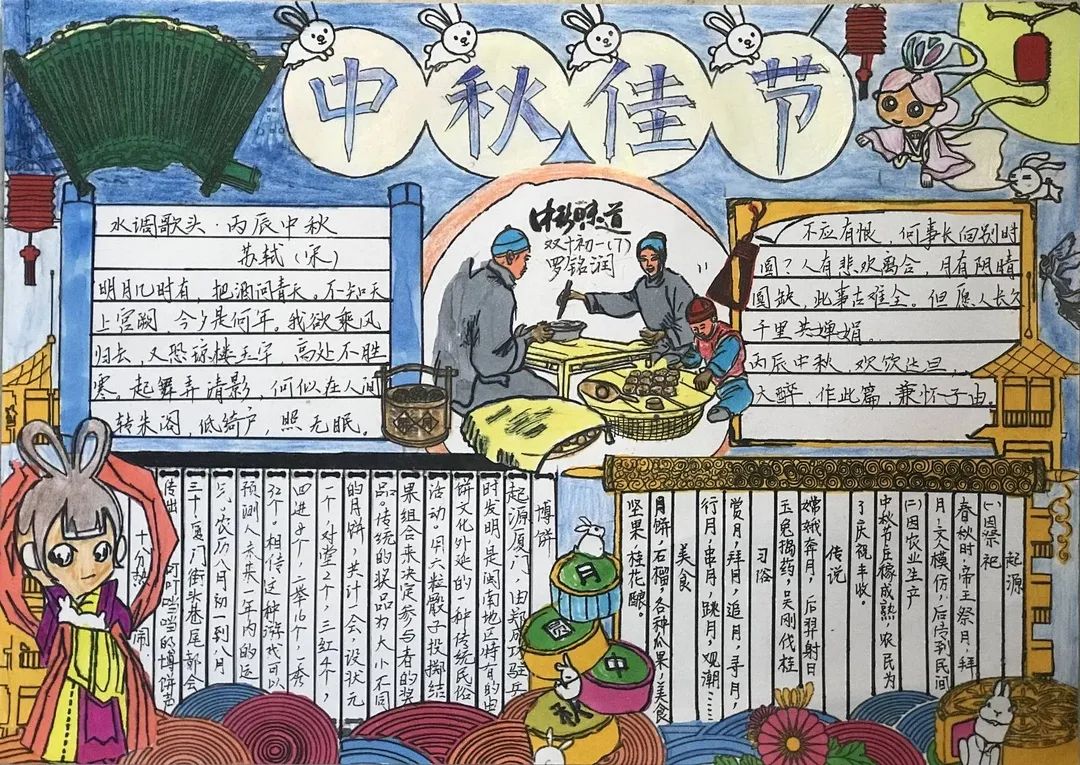 中秋佳节
水调歌头·丙辰中秋
苏轼(宋)
明月几时有,把酒问青天。不知天
上宫阙,今夕是何年。我欲乘风
归去,又恐琼楼玉宇,高处不胜
寒。起舞弄清影,何似在人间
转朱阁,低绮户,照无眠。
中秋味道
双十初一(7)
罗铭润
不应有恨,何事长向别时
圆?人有悲欢离合,月有阴晴
圆缺,此事古难全。但愿人长久
千里共婵娟。
丙辰中秋,欢饮达旦,
大醉,作此篇,兼怀子由。
博饼
起源厦门,由郑成功驻兵
时发明是闽南地区特有的中
饼文化外延的一种传统民俗
活动。用六粒骰子投掷结
果组合来决定参与者的奖
品。传统的奖品为大小不同
的月饼,共计一会,设状元
一个,对堂2个,三红4个,
四进8个,一举16个,一秀
32个。相传这种游戏可以
预测人未来一年内的运
气。农历八月初一到八月
三十,厦门街头巷尾都会
传出 叮叮当当的博饼声
十分热 闹
起源
(一)因祭祀
春秋时,帝王祭月,拜
月,文人模仿,后传到民间
(二)因农业生产
中秋节丘稼成熟,农民为
了庆祝丰收。
传说
嫦娥奔月,后羿射日
玉兔捣药,吴刚伐桂
习俗
赏月,拜月,追月,寻月,
行月,串月,跳月,观潮……
美食
月饼,石榴,各种瓜果,美食
坚果 桂花酿。
月
圆
中
秋